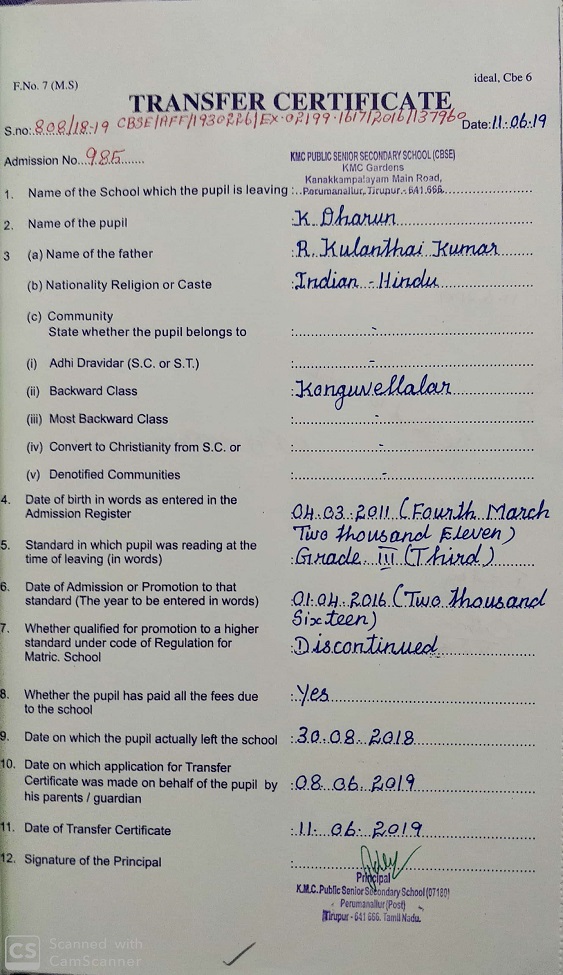 F.No. 7 (M.S)
ideal, Cbe 6
TRANSFER CERTIFICATE
S.no: 808/18-19 CBSE/AFF/1930226/EX-02199-1617/2016/137960 Date: 11.06.19
Admission No. 985
KMC PUBLIC SENIOR SECONDARY SCHOOL (CBSE)
KMC Gardens
Kanakkampalayam Main Road,
1. Name of the School which the pupil is leaving : Perumanallur, Tirupur - 641 666.
2. Name of the pupil : K. Dharun
3 (a) Name of the father : R. Kulanthai Kumar
(b) Nationality Religion or Caste : Indian - Hindu
(c) Community
State whether the pupil belongs to : -
(i) Adhi Dravidar (S.C. or S.T.) : -
(ii) Backward Class : Konguvellalar
(iii) Most Backward Class : -
(iv) Convert to Christianity from S.C. or : -
(v) Denotified Communities : -
4. Date of birth in words as entered in the
Admission Register : 04.03.2011 (Fourth March
Two thousand Eleven)
5. Standard in which pupil was reading at the
time of leaving (in words) : Grade III (Third)
6. Date of Admission or Promotion to that
standard (The year to be entered in words) : 01.04.2016 (Two thousand
Sixteen)
7. Whether qualified for promotion to a higher
standard under code of Regulation for : Discontinued
Matric. School
8. Whether the pupil has paid all the fees due : Yes
to the school
9. Date on which the pupil actually left the school : 30.08.2018
10. Date on which application for Transfer
Certificate was made on behalf of the pupil by : 08.06.2019
his parents / guardian
11. Date of Transfer Certificate : 11.06.2019
12. Signature of the Principal :
Principal
K.M.C. Public Senior Secondary School (07180)
Perumanallur (Post)
Tirupur - 641 666. Tamil Nadu.
CS Scanned with
CamScanner